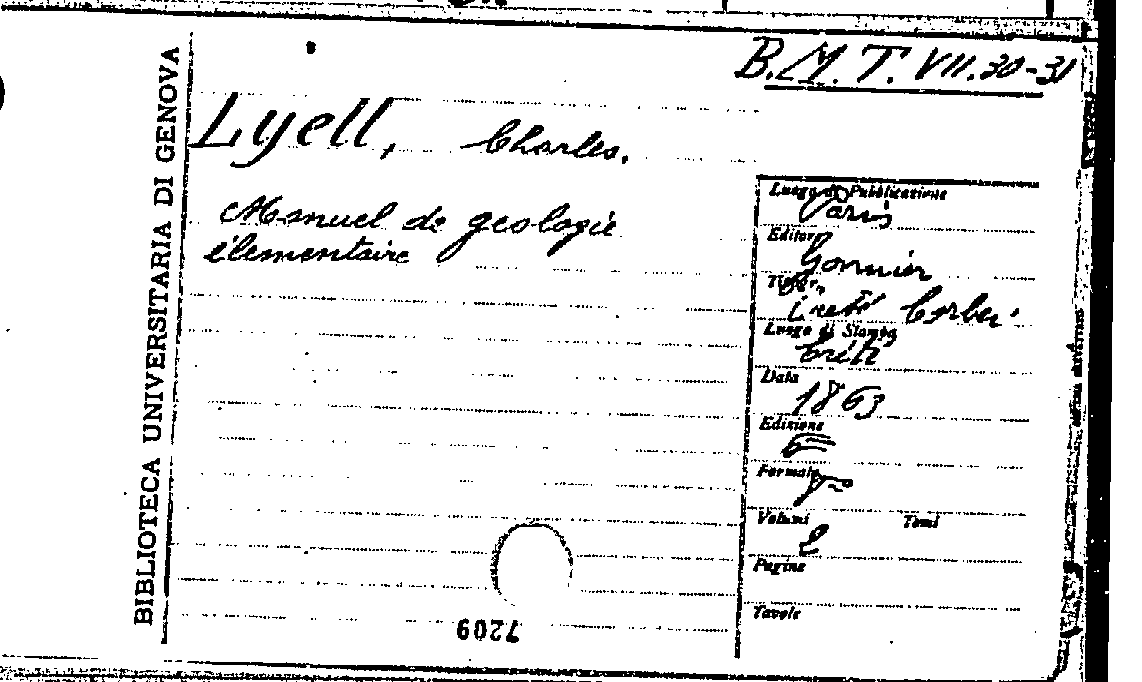 B.M.T. VII.30-31
BIBLIOTECA UNIVERSITARIA DI GENOVA
Lyell, Charles.
Manuel de geologie
élementaire
Luogo di Pubblicazione
Paris
Editore
Garnier
Tipogr.
Creté Corbeil
Luogo di Stampa
Data
1863
Edizione
Formato
Volumi Tomi
2
Pagine
Tavole
7209